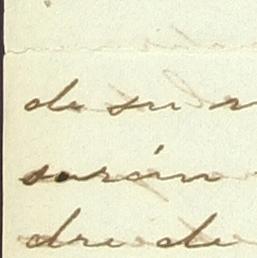 de su
serán
dre de